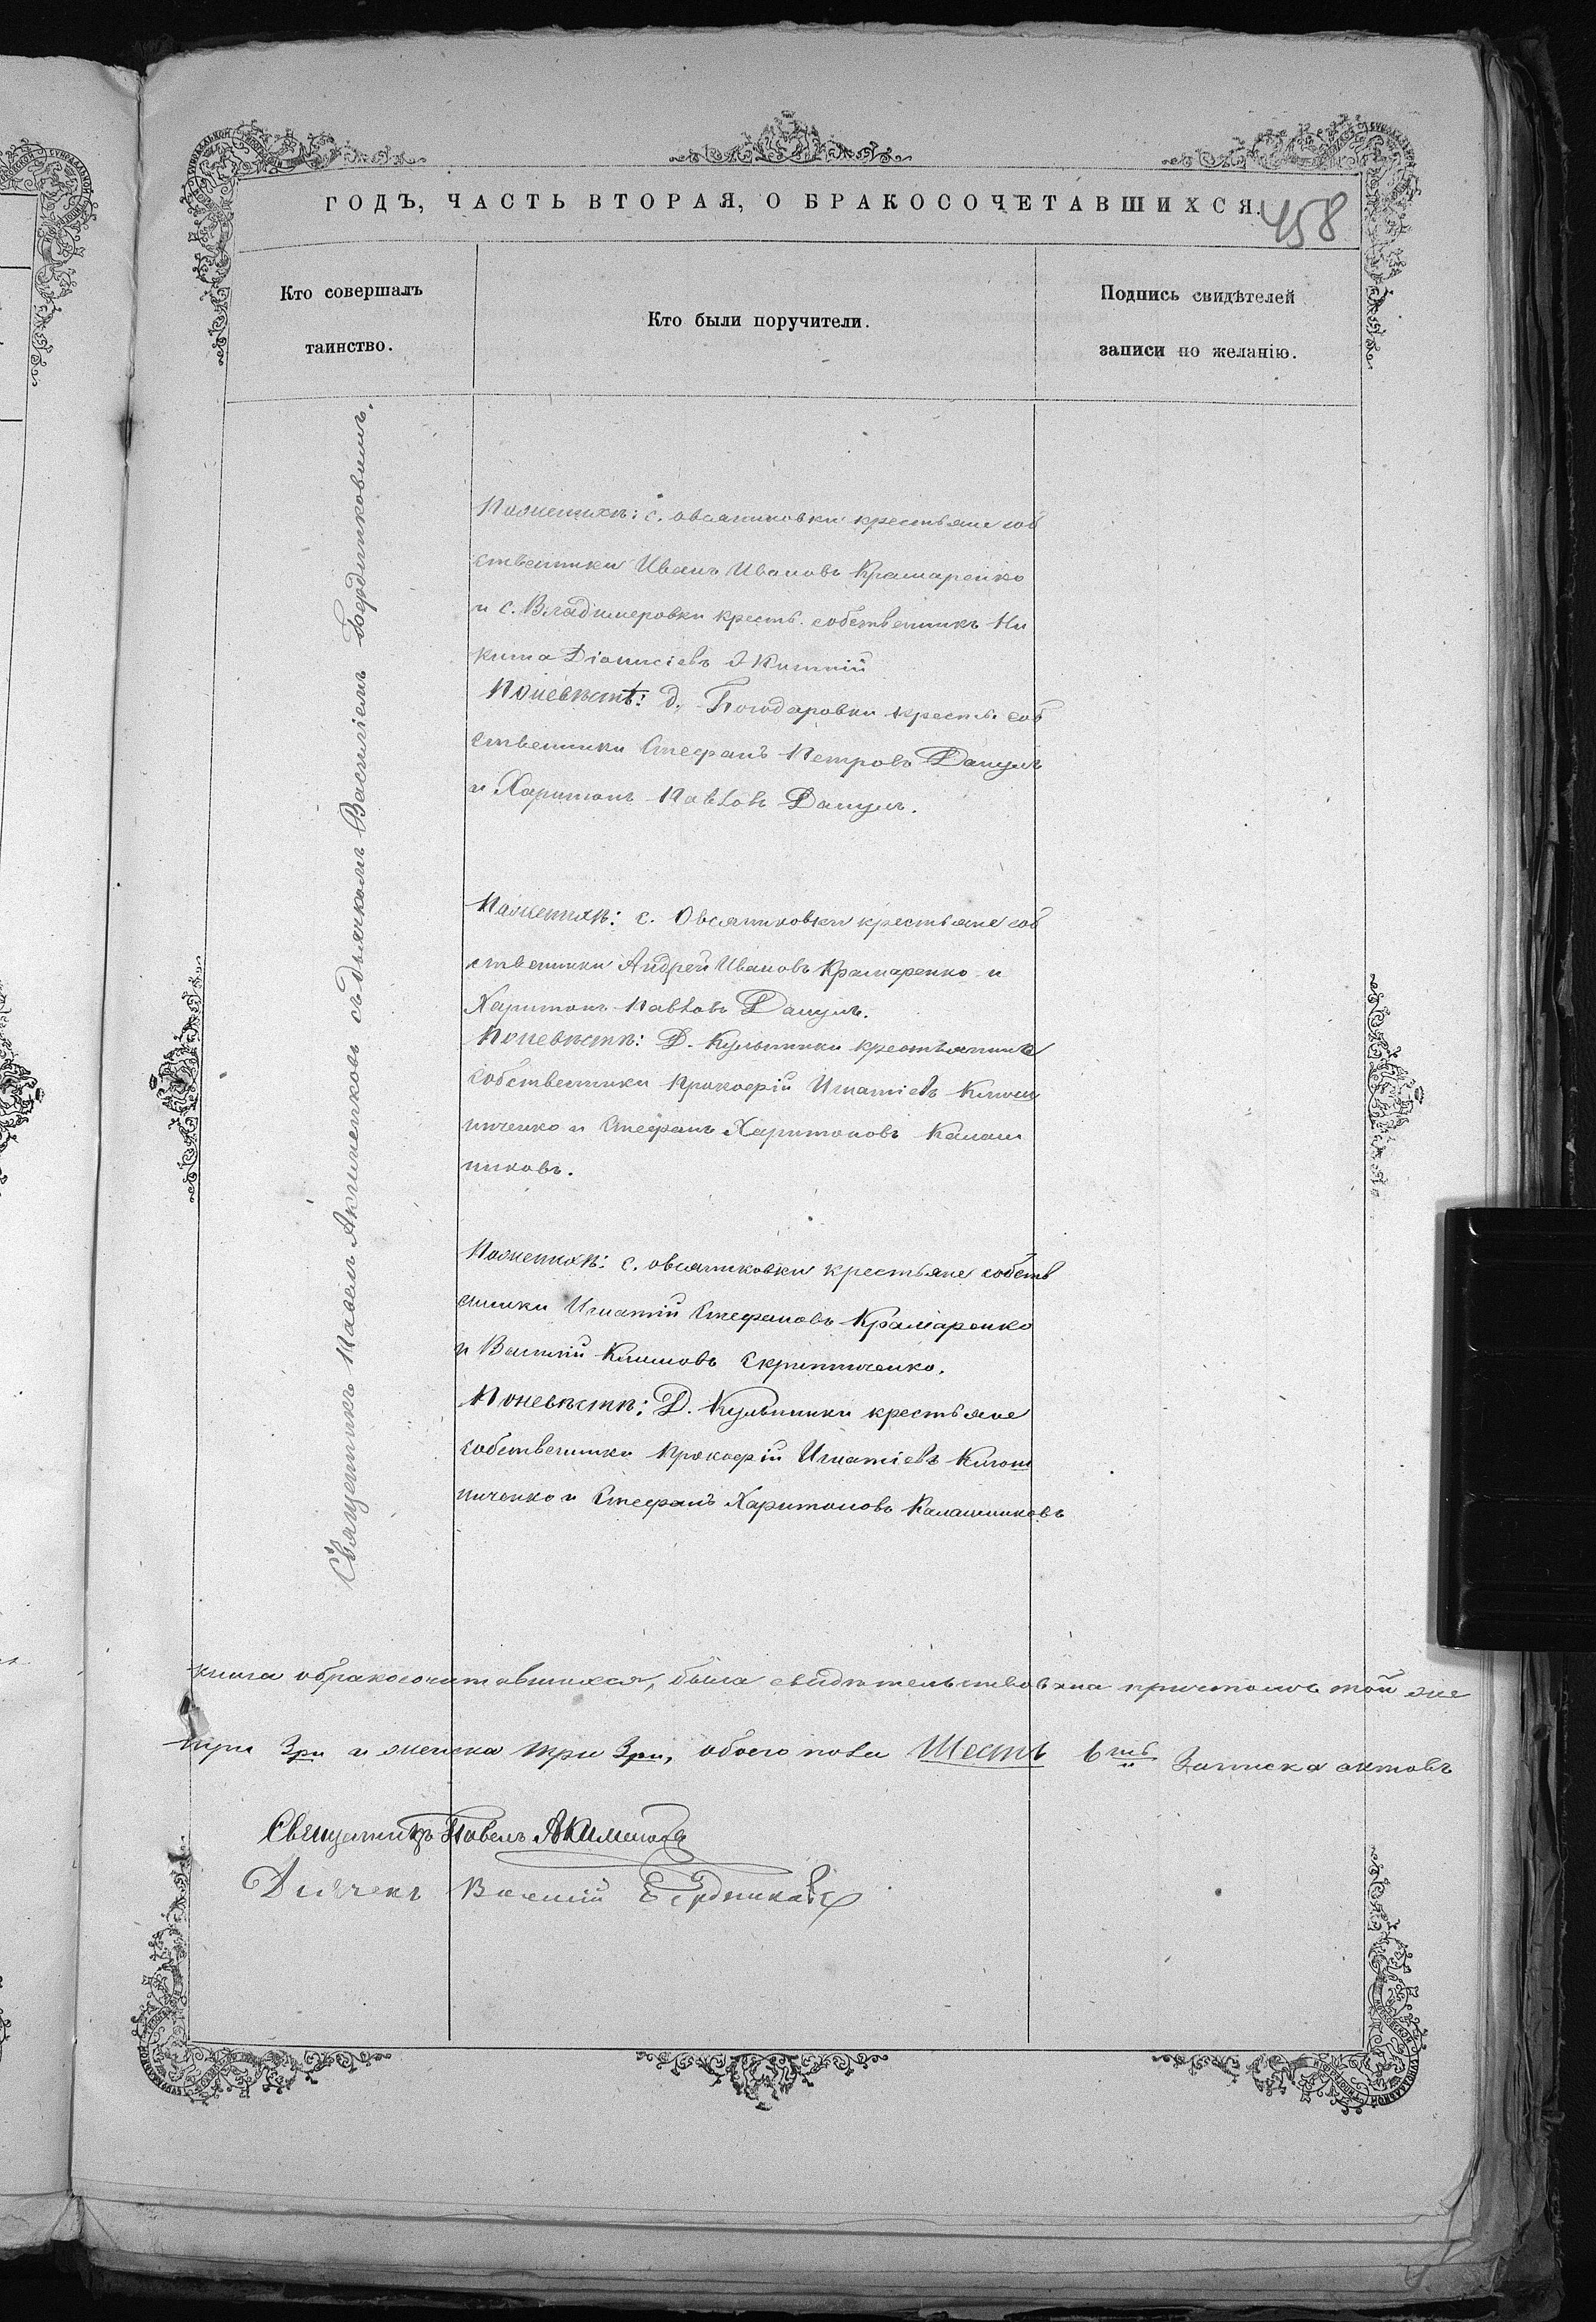 ГОДЪ, ЧАСТЬ ВТОРАЯ, О БРАКОСОЧЕТАВШИХСЯ.
458
Кто совершалъ
таинство.
Кто были поручители.
Подпись свидѣтелей
записи по желанію.
Священникъ Павелъ Акименковъ съ дьячкомъ Василіемъ Бердниковымъ.
По женихѣ: с. Овсяниковки крестьяне соб
ственники Иванъ Ивановъ Крамаренко
и с. Владимеровки кресть. собственникъ Ни
кита Діонисіевъ
По невѣстѣ: д. Богодаровки кресть. соб
ственники Стефанъ Петровъ Дануль
и Харитонъ Павловъ Дануль.
По женихѣ: с. Овсяниковки крестьяне соб
ственники Андрей Ивановъ Крамаренко и
Харитонъ Павловъ Дануль.
По невѣстѣ: Д. крестьяне
собственники Прокофій Игнатіевъ Клюш
ниченко и Стефанъ Харитоновъ Калаш
никовъ.
По женихѣ: с. Овсяниковки крестьяне собств
енники Игнатій Стефановъ Крамаренко
и Василій Климовъ Скрипниченко.
По невѣстѣ: Д. крестьяне
собственники Прокофій Игнатіевъ Клюш
ниченко и Стефанъ Харитоновъ Калашниковъ
книга о бракосочитавшихся, была свидѣтельствована причтомъ той же
три 3ри и женска три 3ри, обоего пола Шесть 6ть записка актовъ
Священникъ Павелъ Акименковъ
Дьячекъ Василій Бердниковъ